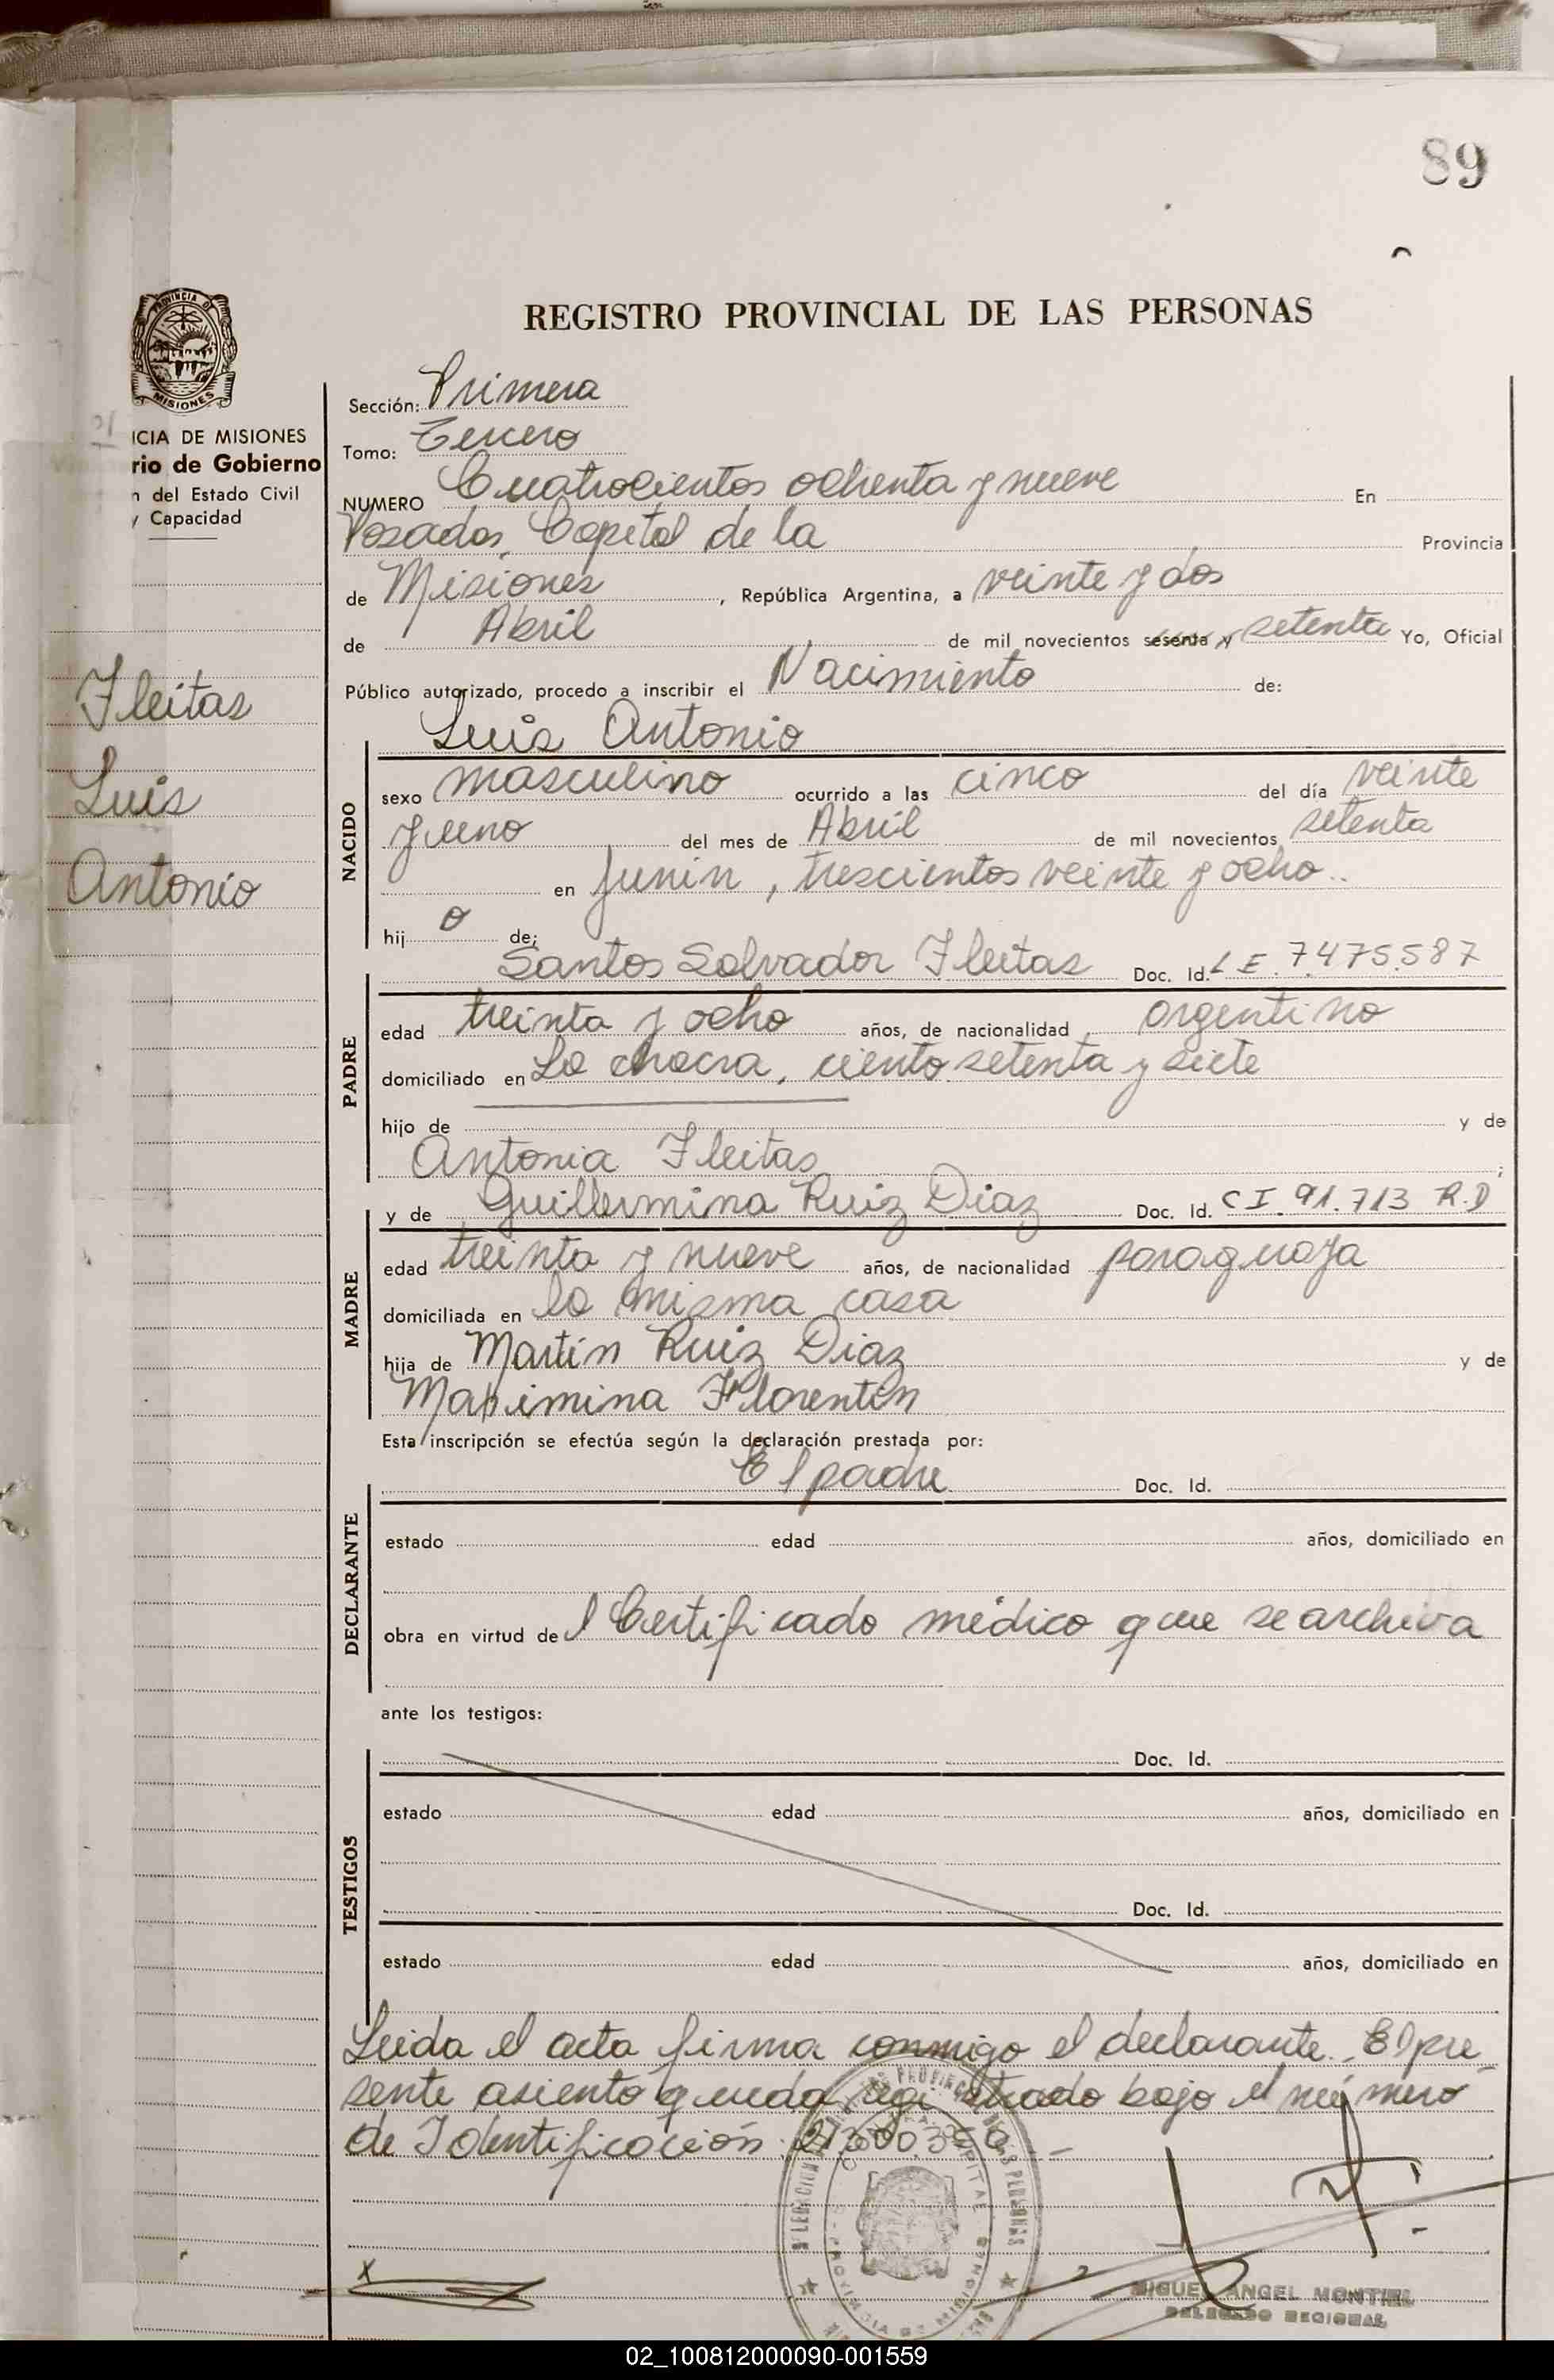 89
REGISTRO PROVINCIAL DE LAS PERSONAS
PROVINCIA DE
MISIONES
ICIA DE MISIONES
rio de Gobierno
n del Estado Civil
y Capacidad
Fleitas
Luis
Antonio
Sección: Primera
Tomo: Tercero
NUMERO Cuatrocientos ochenta y nueve En
Posadas, Capital de la Provincia
de Misiones, República Argentina, a veinte y dos
de Abril de mil novecientos sesenta y setenta Yo, Oficial
Público autorizado, procedo a inscribir el Nacimiento de:
NACIDO
Luis Antonio
sexo masculino ocurrido a las cinco del día veinte
y uno del mes de Abril de mil novecientos setenta
en Junin, trescientos veinte y ocho..
hijo de:
PADRE
Santos Salvador Fleitas Doc. Id. L E. 7.475.587
edad treinta y ocho años, de nacionalidad argentino
domiciliado en La chacra, ciento setenta y siete
hijo de y de
Antonia Fleitas;
MADRE
y de Guillermina Ruiz Diaz Doc. Id. C I. 91.713 R.D
edad treinta y nueve años, de nacionalidad paraguaya
domiciliada en la misma casa
hija de Martín Ruiz Diaz y de
Maximina Florentín
Esta inscripción se efectúa según la declaración prestada por:
DECLARANTE
El padre Doc. Id.
estado edad años, domiciliado en
obra en virtud del Certificado médico que se archiva
ante los testigos:
TESTIGOS
Doc. Id.
estado edad años, domiciliado en
Doc. Id.
estado edad años, domiciliado en
Leida el acta firma conmigo el declarante. El pre
sente asiento queda registrado bajo el número
de Identificación:
MIGUEL ANGEL MONTIEL
DELEGADO REGIONAL
02_100812000090-001559